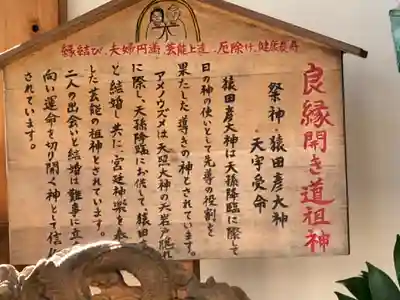 縁結び、夫婦円満、芸能上達、厄除け、健康長寿
良縁開き道祖神
祭神・猿田彦大神
・天宇受命
猿田彦大神は天孫降臨に際して
日の神の使いとして先導の役割を
果たした導きの神とされています。
アメノウズメは天照大神の天岩戸隠れ
に際し、天孫降臨にお供して、猿田
と結婚し共に、宮廷神楽を奉
た芸能の祖神とされています。
二人の出会いと結婚は難事に立
向い運命を切り開く神として信
されています。